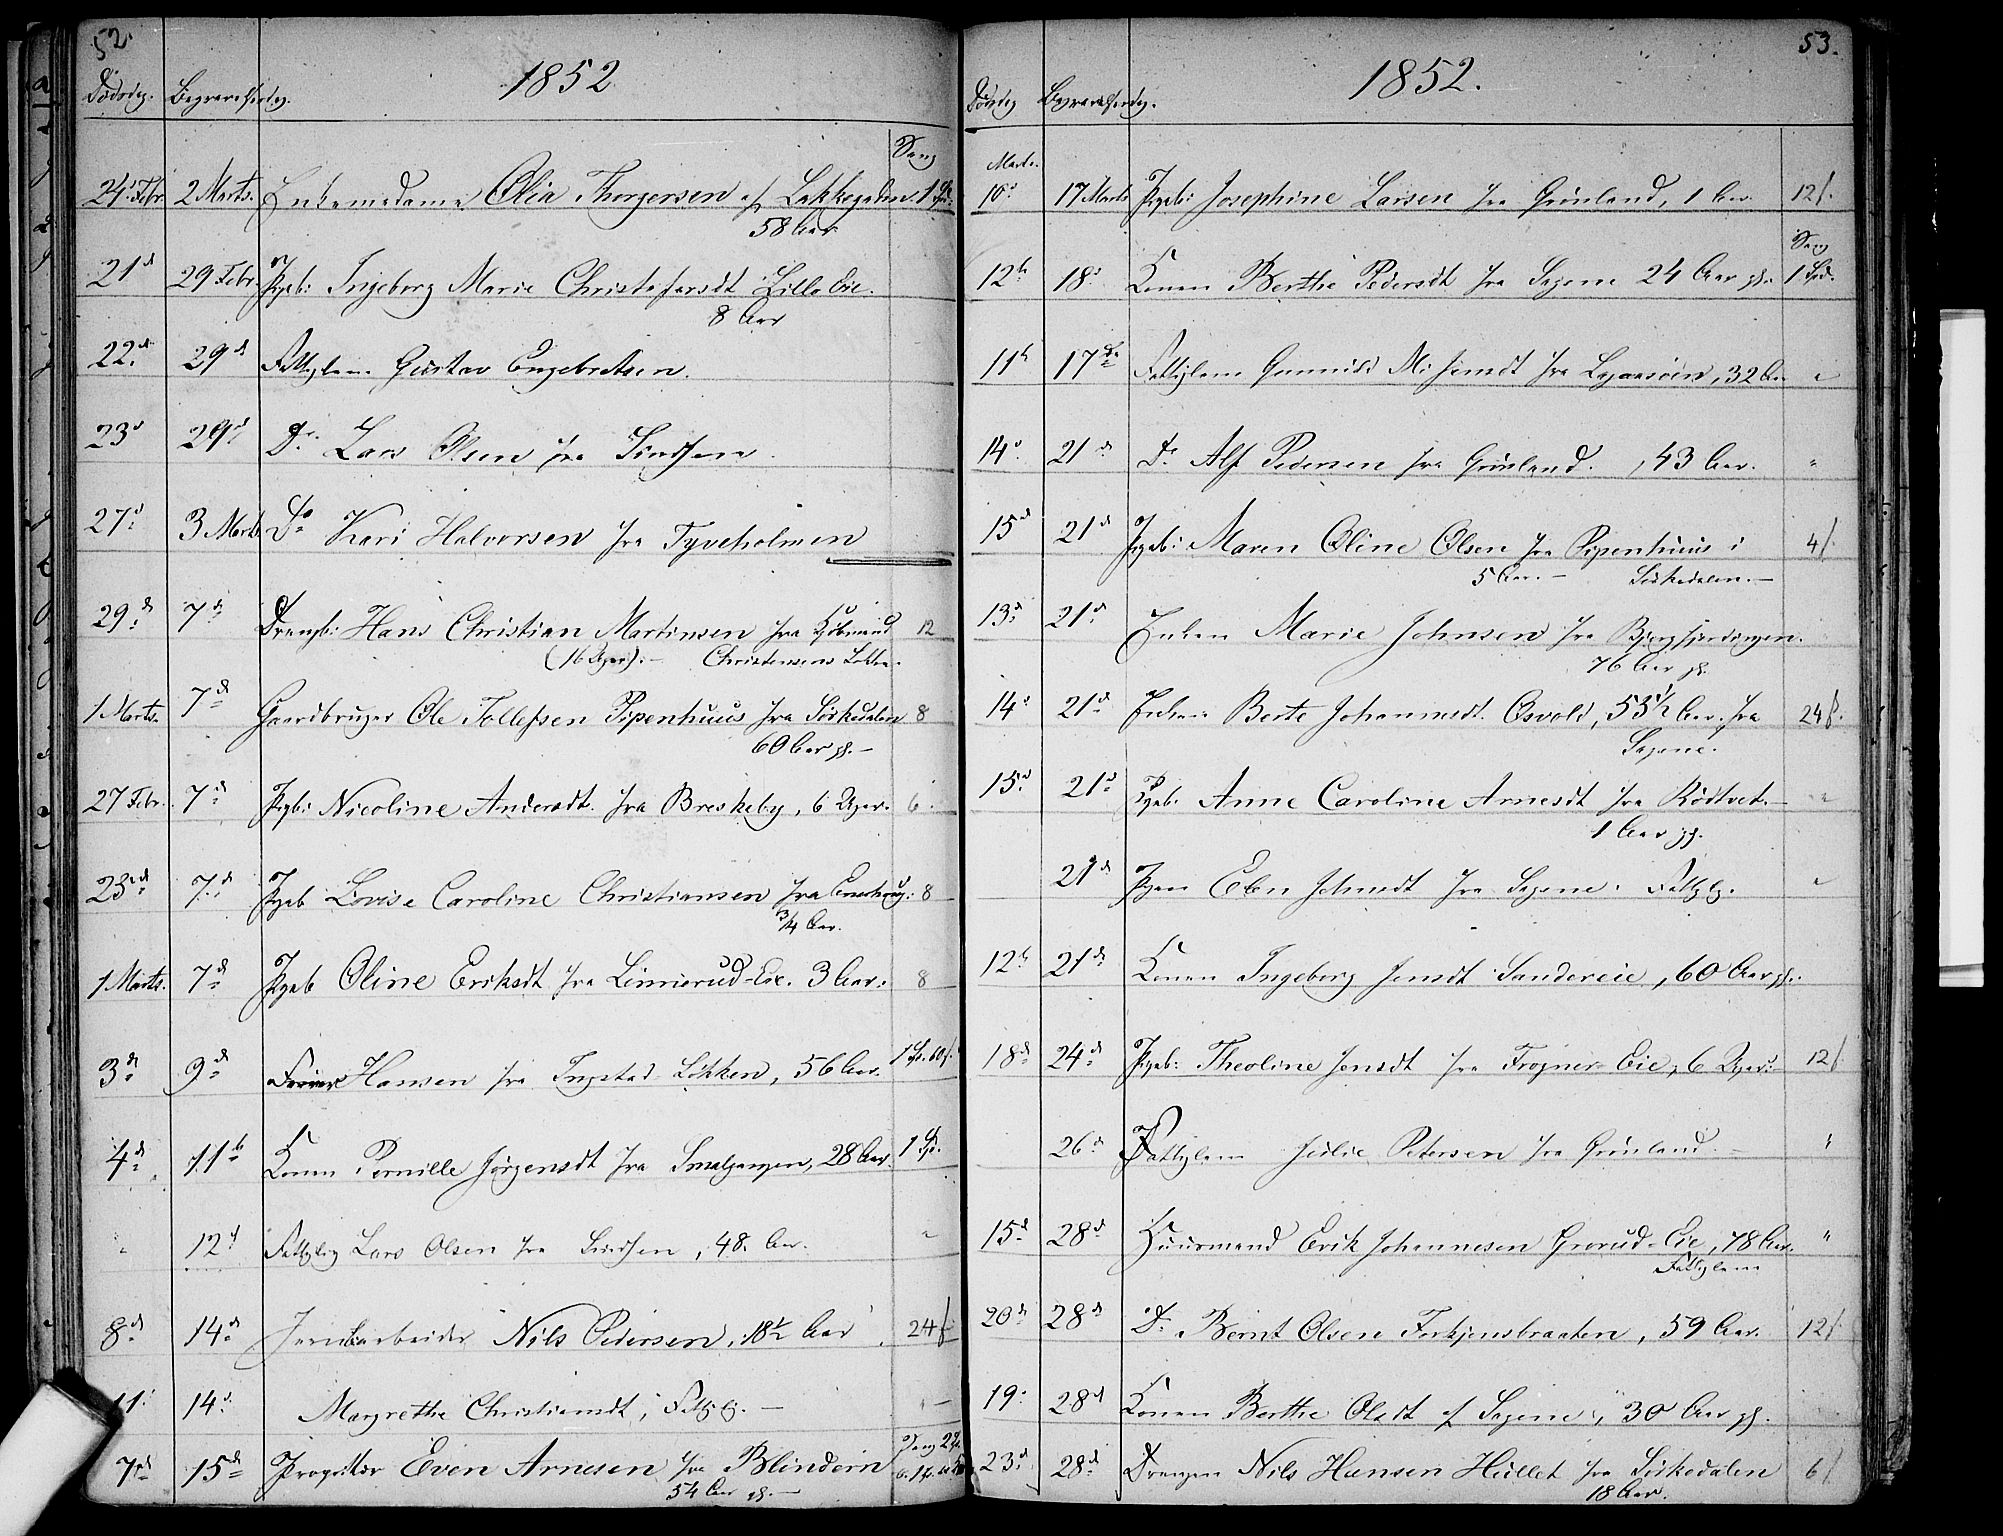 52.
1852
Dødsdag. Begravelsesdag.
Sang
24d Febr. 2 Marts. Enkemadame Olia Thorgersen af Lakkegaden 1 Spd.
58 Aar
21d 29 Febr. Pigeb: Ingeborg Marie Christofersdt Lilleeie.
8 Aar
22d 29d Fattiglem Gustav Engebretsen.
23d 29d Do Lars Olsen fra Sindsen.
27d 3 Marts. Do Kari Halvorsen fra Tyveholmen
29d 7d Drengb: Hans Christian Martinsen fra Kjøbmand 12
(16 Uger). – Christensens Løkke.
1 Marts. 7d Gaardbruger Ole Tollefsen Pipenhuus fra Sørkedalen 8
60 Aar gl. –
27 Febr. 7d Pigb: Nicoline Andersdt. fra Breskeby, 6 Uger. 6.
23d 7d Pigeb Lovise Caroline Christiansen fra 8
3/4 Aar.
1 Marts. 7d Pigeb Oline Eriksdt fra Linnerud-Eie. 3 Aar. 8
3d 9d Hansen fra Løkken, 56 Aar. 1 Sp. 60 s.
4d 11te Konen Pernille Jørgensdt fra Smalgangen, 28 Aar. 1 Spd.
" 12d Fattiglig Lars Olsen fra Sindsen, 48 Aar. "
8d 14d Jernbarbeider Nils Pedersen, 18 1/2 Aar 24 s
11d 14d Margrethe Christiansdt, Fattiglig. – " –
Sang 2 Sp.
7d 15d Proprietær Even Arnesen fra Blindern
54 Aar gl. –
53.
1852.
Dødsdag Begravelsesdag.
Marts.
10d 17 Marts Pigeb: Josephine Larsen fra Grønland, 1 Aar. 12 s.
Sang
12te 18d Konen Berthe Pedersdt fra Sagene 24 Aar gl. 1 Spd.
11te 17de Fattiglem Gunnild fra , 32 Aar "
14d 21d Do Alf Pedersen fra Grønland. , 43 Aar. "
15d 21d Pigeb: Maren Oline Olsen fra Pipenhuus i 4 s.
5 Aar. – Sørkedalen. –
13d 21d Enken Marie Johnsen fra Bjergfjerdingen.
76 Aar gl.
14d 21d Enken Berte Johannesdt. Osvold, 55 1/2 Aar. fra 24 s.
Sagene.
15d 21d Pigeb: Anne Caroline Arnesdt fra Rødtvet. – "
1 Aar gl.
21d Pigen Johnsdt fra Sagene. Fattiglig. "
12te 21d Konen Ingeborg Jensdt Sandereie, 60 Aar gl.
18d 24d Pigeb: Theoline Jensdt fra Frogner-Eie, 6 Uger. 12 s
26d Fattiglem Julie Petersen fra Grønland. – "
15d 28d Huusmand Erik Johannesen Grorud-Eie, 78 Aar. "
Fattiglem
20d 28d Do Bernt Olsen Torkjensbraaten, 59 Aar. 12 s
19d 28d Konen Berthe Olsdt af Sagene, 30 Aar gl.
23d 28d Drengen Nils Hansen Hullet fra Sørkedalen 6 s
18 Aar.